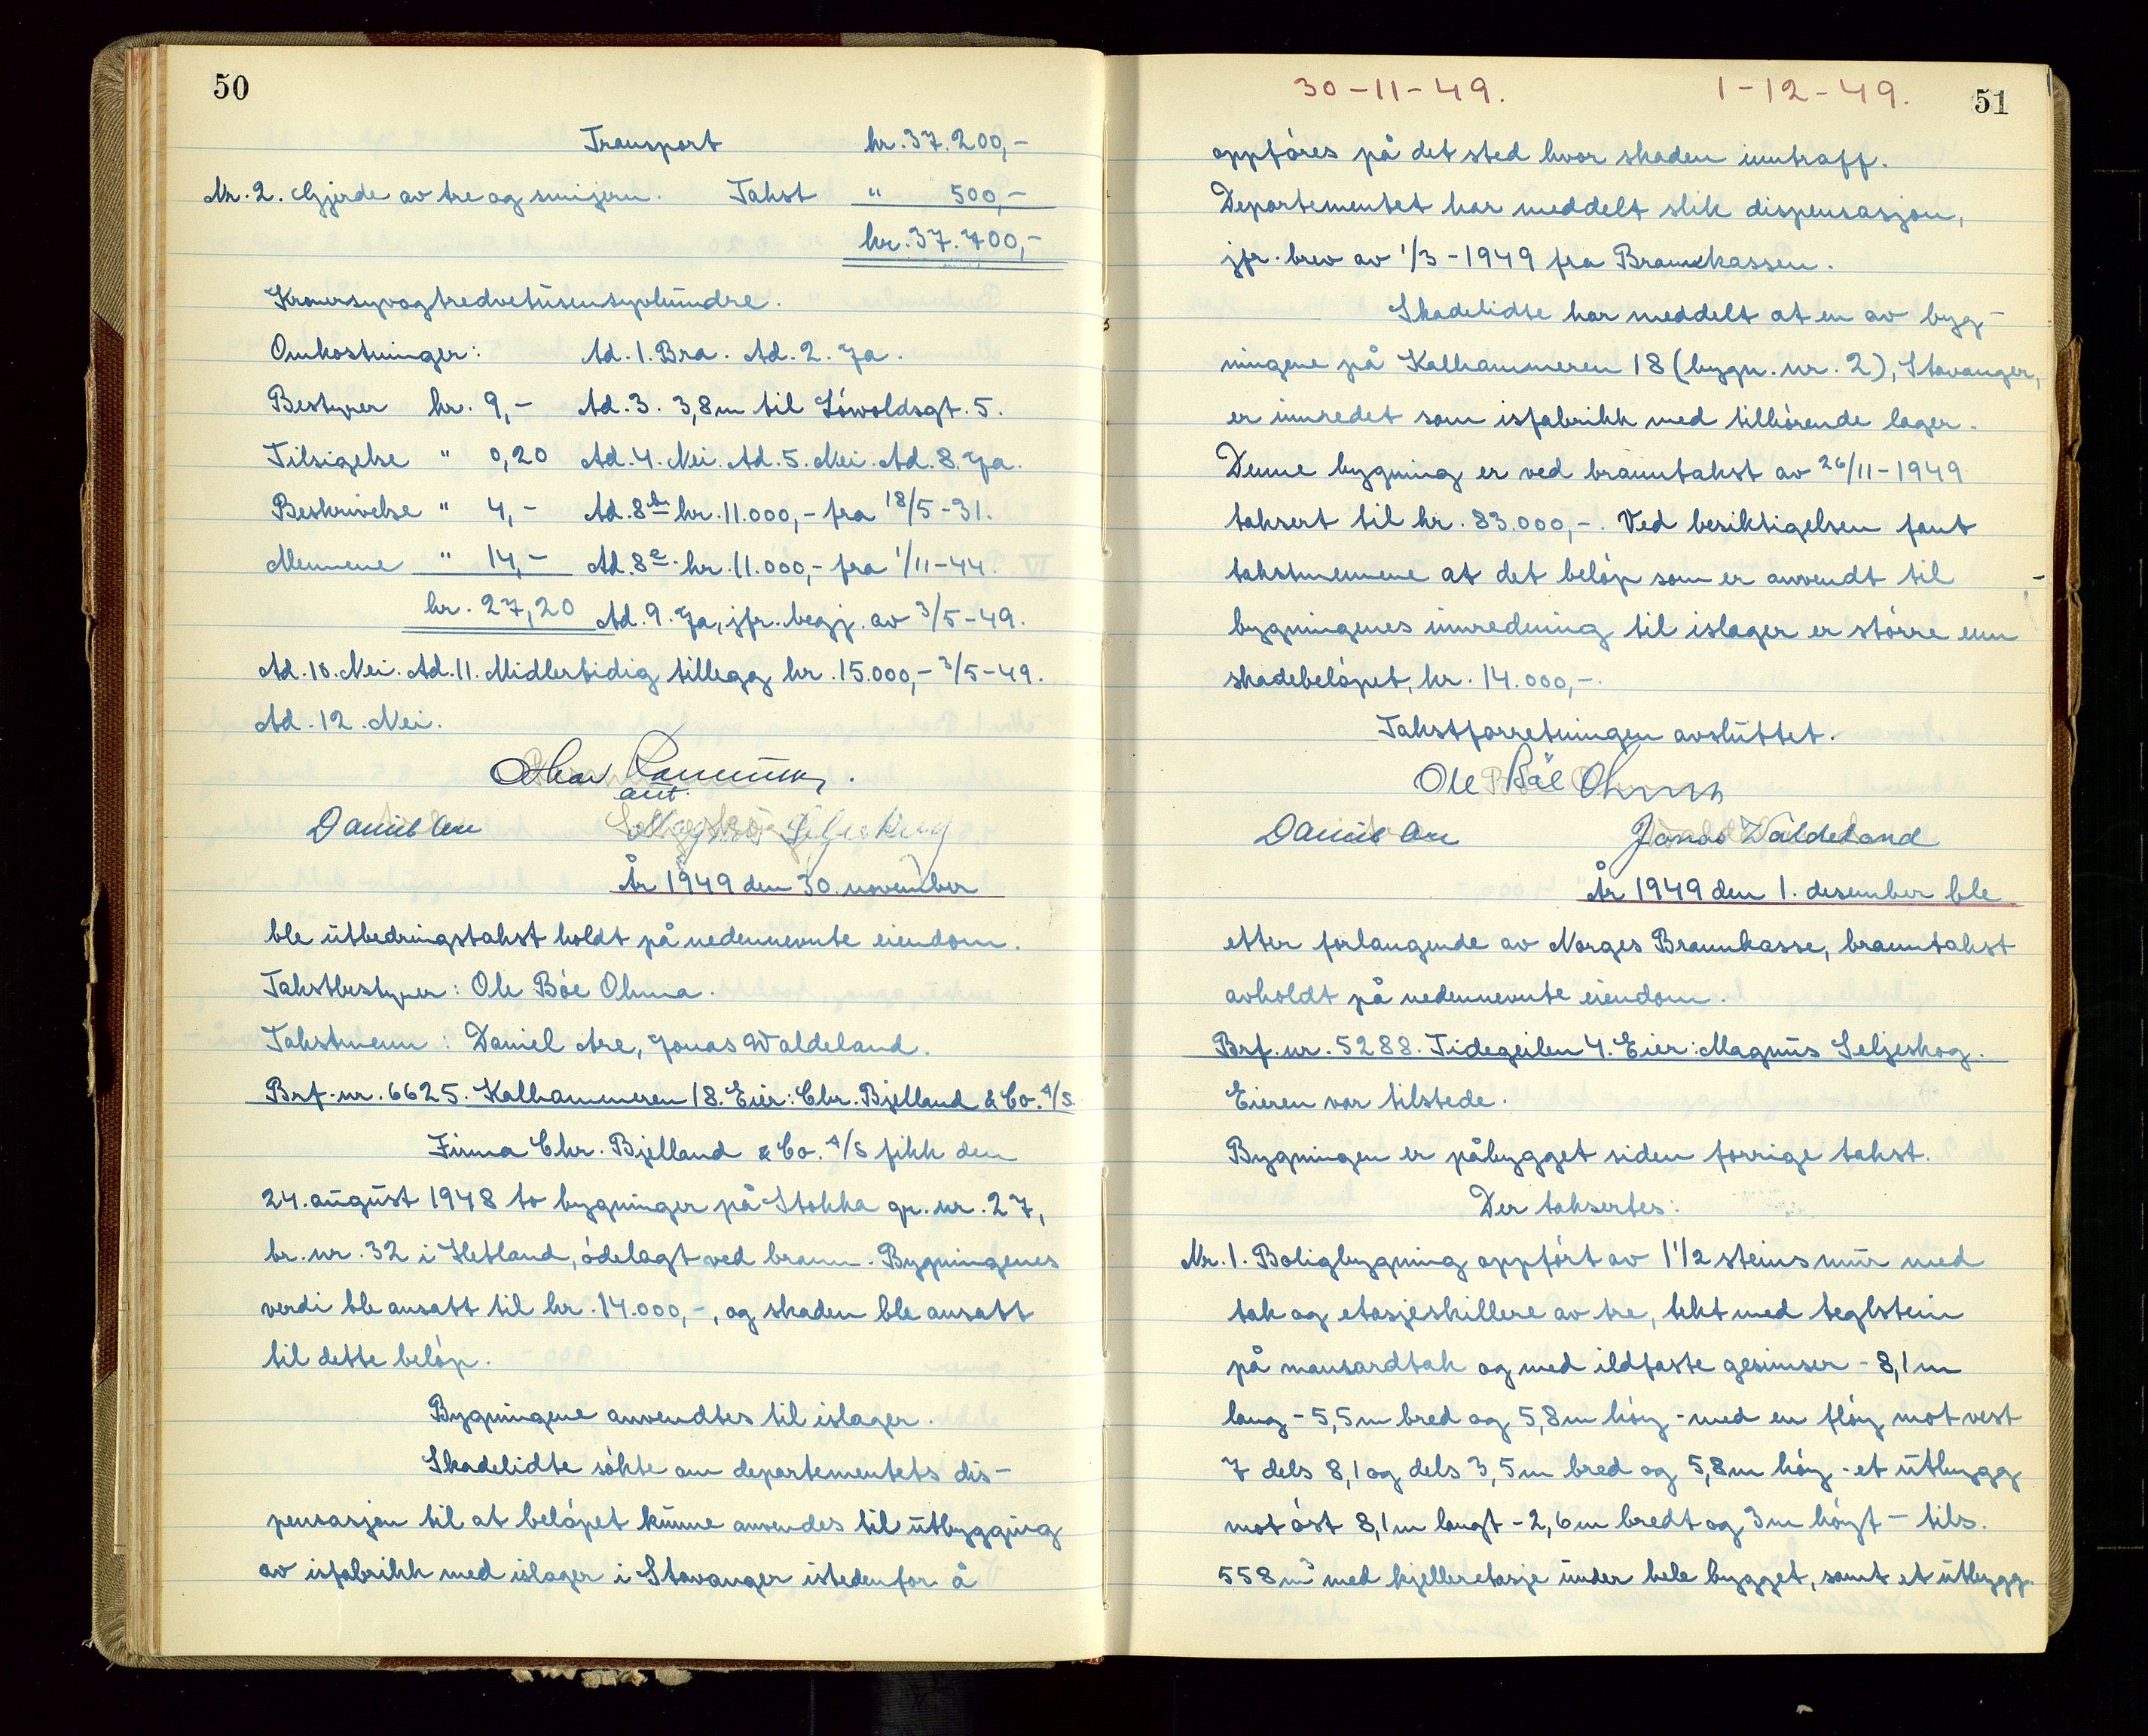 50
Transport kr. 37.200,-
Nr. 2. Gjerde av tre og smijern. Takst " 500,-
kr. 37.700,-
Kronersyvogtredvetusensyvhundre.
Omkostninger: Ad. 1. Bra. Ad. 2. Ja.
Bestyrer kr. 9,- Ad. 3. 3,8 m til Løwoldsgt. 5.
Tilsigelse " 0,20 Ad. 4. Nei. Ad. 5. Nei. Ad. 8. Ja.
Beskrivelse " 4,- Ad. 8b kr. 11.000,- fra 18/5-31.
Mennene " 14,- Ad. 8e. kr. 11.000,- fra 1/11-44.
kr. 27,20 Ad. 9. Ja, jfr. begj. av 3/5-49.
Ad. 10. Nei. Ad. 11. Midlertidig tillegg kr. 15.000,- 3/5-49.
Ad. 12. Nei.
aut.
Daniel Are
År 1949 den 30. november
ble utbedringstakst holdt på nedennevnte eiendom.
Takstbestyrer: Ole Bøe Ohma.
Takstmenn: Daniel Are, Jonas Waldeland.
Brf. nr. 6625. Kalhammeren 18. Eier: Chr. Bjelland & Co. A/S
Firma Chr. Bjelland & Co. A/S fikk den
24. august 1948 to bygninger på Stokka gr. nr. 27,
br. nr. 32 i Hetland, ødelagt ved brann. Bygningenes
verdi ble ansatt til kr. 14.000,-, og skaden ble ansatt
til dette beløp.
Bygningene anvendtes til islager.
Skadelidte søkte om departementets dis-
pensasjon til at beløpet kunne anvendes til utbygging
av isfabrikk med islager i Stavanger istedenfor å
30-11-49. 1-12-49. 51
oppføres på det sted hvor skaden inntraff.
Departementet har meddelt slik dispensasjon,
jfr. brev av 1/3-1949 fra Brannkassen.
Skadelidte har meddelt at en av byg-
ningene på Kalhammeren 18 (bygn. nr. 2), Stavanger,
er innredet som isfabrikk med tilhørende lager.
Denne bygning er ved branntakst av 26/11-1949
taksert til kr. 83.000,-. Ved besiktigelsen fant
takstmennene at det beløp som er anvendt til
bygningenes innredning til islager er større enn
skadebeløpet, kr. 14.000,-.
Takstforretningen avsluttet.
Ole Bøe Ohma
Daniel Are Jonas Waldeland
År 1949 den 1. desember ble
etter forlangende av Norges Brannkasse, branntakst
avholdt på nedennevnte eiendom.
Brf. nr. 5288. Tidegeilen 4. Eier: Magnus Seljeskog.
Eieren var tilstede.
Bygningen er påbygget siden forrige takst.
Der taksertes:
Nr. 1. Boligbygning oppført av 1 1/2 steins mur med
tak og etasjeskillere av tre, tekt med teglstein
på mansardtak og med ildfaste gesimser - 8,1 m
lang - 5,5 m bred og 5,8 m høy - med en fløy mot vest
7 dels 8,1 og dels 3,5 m bred og 5,8 m høy - et utbygg
mot øst 8,1 m langt - 2,6 m bredt og 3 m høyt - tils.
558 m³ med kjelleretasje under hele bygget, samt et utbygg.